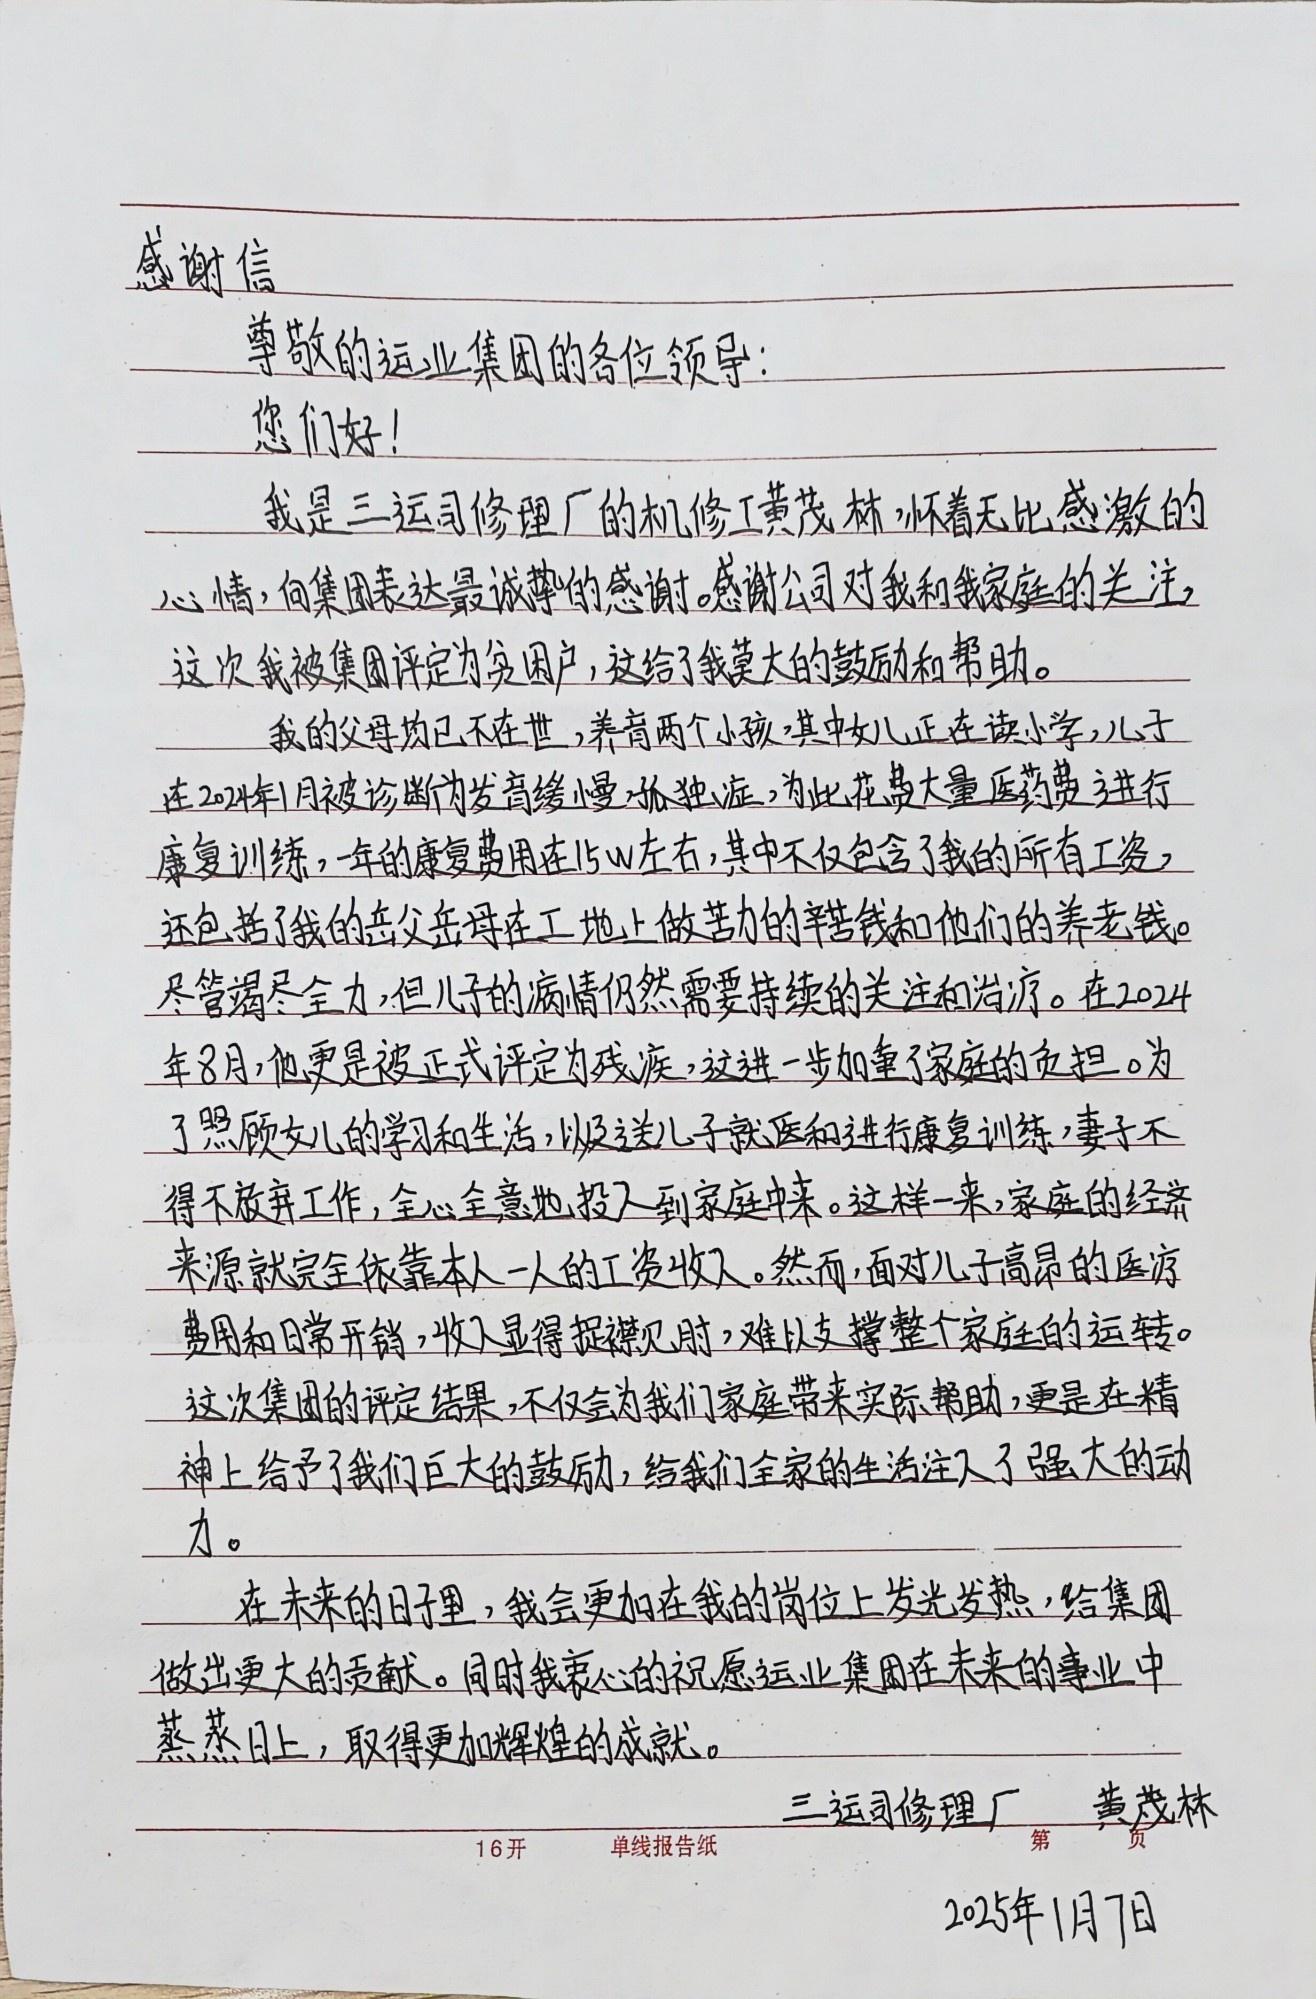 感谢信
尊敬的运业集团的各位领导：
您们好！
我是三运司修理厂的机修工黄茂林，怀着无比感激的
心情，向集团表达最诚挚的感谢。感谢公司对我和我家庭的关注，
这次我被集团评定为贫困户，这给了我莫大的鼓励和帮助。
我的父母均已不在世，养育两个小孩，其中女儿正在读小学，儿子
在2024年1月被诊断为发育缓慢，孤独症，为此花费大量医药费进行
康复训练，一年的康复费用在15W左右，其中不仅包含了我的所有工资，
还包括了我的岳父岳母在工地上做苦力的辛苦钱和他们的养老钱。
尽管竭尽全力，但儿子的病情仍然需要持续的关注和治疗。在2024
年8月，他更是被正式评定为残疾，这进一步加重了家庭的负担。为
了照顾女儿的学习和生活，以及送儿子就医和进行康复训练，妻子不
得不放弃工作，全心全意地投入到家庭中来。这样一来，家庭的经济
来源就完全依靠本人一人的工资收入。然而，面对儿子高昂的医疗
费用和日常开销，收入显得捉襟见肘，难以支撑整个家庭的运转。
这次集团的评定结果，不仅会为我们家庭带来实际帮助，更是在精
神上给予了我们巨大的鼓励，给我们全家的生活注入了强大的动
力。
在未来的日子里，我会更加在我的岗位上发光发热，给集团
做出更大的贡献。同时我衷心的祝愿运业集团在未来的事业中
蒸蒸日上，取得更加辉煌的成就。
三运司修理厂 黄茂林
16开 单线报告纸 第 页
2025年1月7日